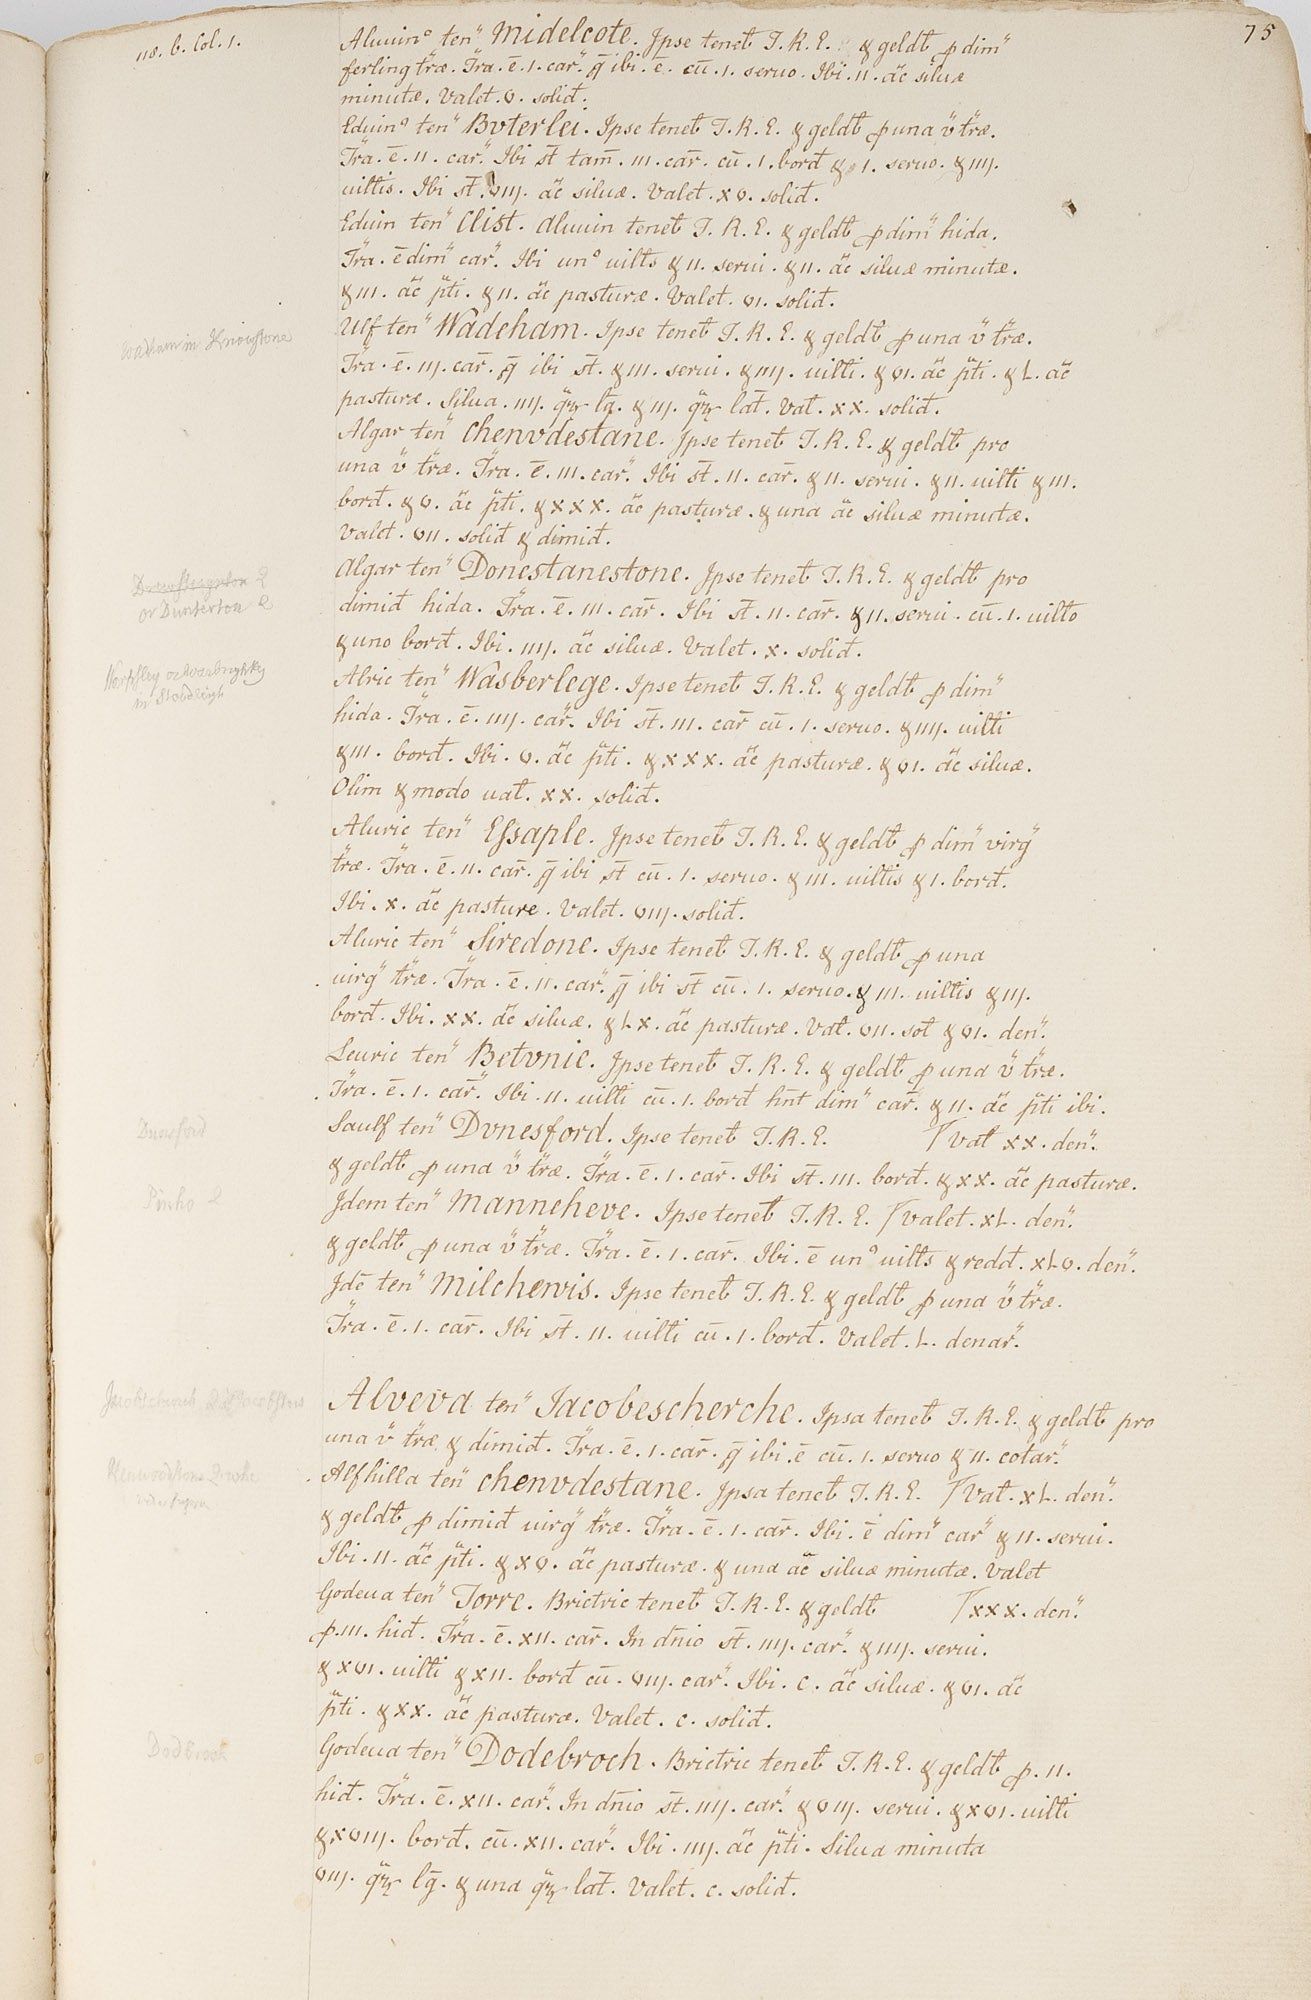 75
118. b. Col. 1.
Aluuin⁹ ten̄ Midelcote. Ipse tenet T. R. E. & geldƀ ꝑ dim̄
ferling t̄ræ. T̄ra. ē. 1. car̄. q̄ ibi. ē. cū. 1. seruo. Ibi. 11. ac̄ siluæ
minutæ. Valet. v. solid̄.
Eduin⁹ ten̄ Bvterlei. Ipse tenet T. R. E. & geldƀ ꝑ una v̄ t̄ræ.
T̄ra. ē. 11. car̄. Ibi st̄ tam̄. 111. car̄. cū. 1. bord̄ & 1. seruo. & 1111.
uiłłis. Ibi st̄. v111. ac̄ siluæ. Valet. xv. solid̄.
Eduin ten̄ Clist. Aluuin tenet T. R. E. & geldƀ ꝑ dim̄ hida.
T̄ra. ē dim̄ car̄. Ibi un⁹ uiłłs & 11. serui. & 11. ac̄ siluæ minutæ.
& 111. ac̄ p̄ti. & 11. ac̄ pasturæ. Valet. v1. solid̄.
Wadham in Knowstone
Ulf ten̄ Wadeham. Ipse tenet T. R. E. & geldƀ ꝑ una v̄ t̄ræ.
T̄ra. ē. 111. car̄. q̄ ibi st̄. & 111. serui. & 1111. uiłłi. & v1. ac̄ p̄ti. & L. ac̄
pasturæ. Silua. 1111. q̄ꝝ lḡ. & 111. q̄ꝝ lat̄. Vał. xx. solid̄.
Algar ten̄ Chenvdestane. Ipse tenet T. R. E. & geldƀ pro
una v̄ t̄ræ. T̄ra. ē. 111. car̄. Ibi st̄. 11. car̄. & 11. serui. & 11. uiłłi & 111.
bord̄. & v. ac̄ p̄ti. & xxx. ac̄ pasturæ. & una ac̄ siluæ minutæ.
Valet. v11. solid̄ & dimid̄.
or Dunterton Q
Algar ten̄ Donestanestone. Ipse tenet T. R. E. & geldƀ pro
dimid̄ hida. T̄ra. ē. 111. car̄. Ibi st̄. 11. car̄. & 11. serui. cū. 1. uiłło
& uno bord̄. Ibi. 1111. ac̄ siluæ. Valet. x. solid̄.
in Stoodleigh
Alric ten̄ Wasberlege. Ipse tenet T. R. E. & geldƀ ꝑ dim̄
hida. T̄ra. ē. 1111. car̄. Ibi st̄. 111. car̄ cū. 1. seruo. & 1111. uiłłi
& 111. bord̄. Ibi. v. ac̄ p̄ti. & xxx. ac̄ pasturæ. & v1. ac̄ siluæ.
Olim & modo uał. xx. solid̄.
Aluric ten̄ Essaple. Ipse tenet T. R. E. & geldƀ ꝑ dim̄ virḡ
t̄ræ. T̄ra. ē. 11. car̄. q̄ ibi st̄ cū. 1. seruo. & 111. uiłłis & 1. bord̄.
Ibi. x. ac̄ pasture. Valet. v111. solid̄.
Aluric ten̄ Siredone. Ipse tenet T. R. E. & geldƀ ꝑ una
uirḡ t̄ræ. T̄ra. ē. 11. car̄. q̄ ibi st̄ cū. 1. seruo. & 111. uiłłis & 111.
bord̄. Ibi. xx. ac̄ siluæ. & Lx. ac̄ pasturæ. Vał. v11. soł & v1. den̄.
Leuric ten̄ Betvnie. Ipse tenet T. R. E. & geldƀ ꝑ una v̄ t̄ræ.
T̄ra. ē. 1. car̄. Ibi. 11. uiłłi cū. 1. bord̄ hn̄t dim̄ car̄. & 11. ac̄ p̄ti ibi.
Dunsford
Saulf ten̄ Dvnesford. Ipse tenet T. R. E. /vał xx. den̄.
& geldƀ ꝑ una v̄ t̄ræ. T̄ra. ē. 1. car̄. Ibi st̄. 111. bord̄. & xx. ac̄ pasturæ.
Pinho Q
Idem ten̄ Manneheve. Ipse tenet T. R. E. /valet. xL. den̄.
& geldƀ ꝑ una v̄ t̄ræ. T̄ra. ē. 1. car̄. Ibi. ē un⁹ uiłłs & redd̄. xLv. den̄.
Idē ten̄ Milchewis. Ipse tenet T. R. E. & geldƀ ꝑ una v̄ t̄ræ.
T̄ra. ē. 1. car̄. Ibi st̄. 11. uiłłi cū. 1. bord̄. Valet. L. denar̄.
Alveva ten̄ Jacobescherche. Ipsa tenet T. R. E. & geldƀ pro
una v̄ t̄ræ & dimid̄. T̄ra. ē. 1. car̄. q̄ ibi. ē cū. 1. seruo & 11. cotar̄.
Alfhilla ten̄ Chenvdestane. Ipsa tenet T. R. E. /Vał. xL. den̄.
& geldƀ ꝑ dimid̄ uirḡ t̄ræ. T̄ra. ē. 1. car̄. Ibi. ē dim̄ car̄ & 11. serui.
Ibi. 11. ac̄ p̄ti. & xv. ac̄ pasturæ. & una ac̄ siluæ minutæ. Valet
Godeua ten̄ Torre. Brictric tenet T. R. E. & geldƀ /xxx. den̄.
ꝑ. 111. hid̄. T̄ra. ē. x11. car̄. In dn̄io st̄. 111. car̄. & 1111. serui.
& xv1. uiłłi & x11. bord̄ cū. v111. car̄. Ibi. c. ac̄ siluæ. & v1. ac̄
p̄ti. & xx. ac̄ pasturæ. Valet. c. solid̄.
Dodbrook
Godeua ten̄ Dodebroch. Brictric tenet T. R. E. & geldƀ ꝑ. 11.
hid̄. T̄ra. ē. x11. car̄. In dn̄io st̄. 1111. car̄. & v111. serui. & xv1. uiłłi
& xv111. bord̄. cū. x11. car̄. Ibi. 1111. ac̄ p̄ti. Silua minuta
v111. q̄ꝝ lḡ. & una q̄ꝝ lat̄. Valet. c. solid̄.